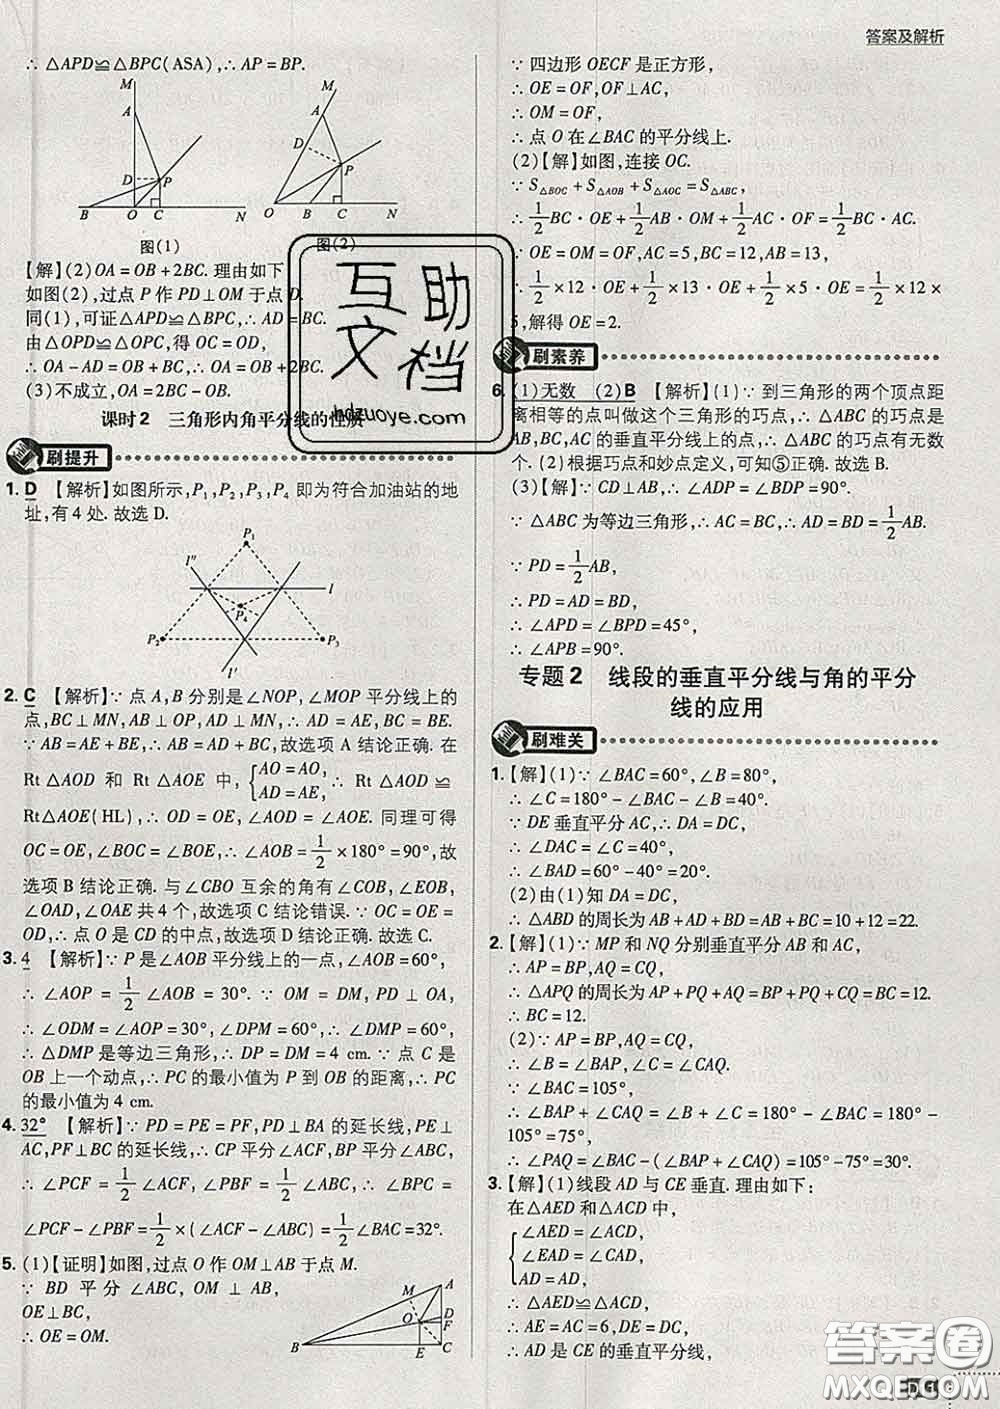 答案及解析
∴ △APD≌△BPC(ASA),∴ AP=BP.
M A D P B O C N
图(1)
M A D P O B C N
图(2)
【解】(2)OA=OB+2BC. 理由如下
如图(2),过点 P 作 PD⊥OM 于点 D.
同(1),可证△APD≌△BPC,∴ AD=BC.
由△OPD≌△OPC,得 OC=OD,
∴ OA-AD=OB+BC,∴ OA-OB=2BC.
(3)不成立,OA=2BC-OB.
课时2 三角形内角平分线的性质
刷提升
1. D 【解析】如图所示,P₁,P₂,P₃,P₄ 即为符合加油站的地
址,有4处. 故选 D.
P₁ l″ l P₄ P₂ P₃ l′
2. C 【解析】∵ 点 A,B 分别是∠NOP,∠MOP 平分线上的
点,BC⊥MN,AB⊥OP,AD⊥MN,∴ AD=AE,BC=BE.
∵ AB=AE+BE,∴ AB=AD+BC,故选项 A 结论正确. 在
Rt△AOD 和 Rt△AOE 中,{AO=AO, AD=AE, ∴ Rt△AOD ≌
Rt△AOE(HL),∴ OD=OE,∠AOD=∠AOE. 同理可得
OC=OE,∠BOC=∠BOE,∴ ∠AOB=1/2×180°=90°,故
选项 B 结论正确. 与∠CBO 互余的角有∠COB,∠EOB,
∠OAD,∠OAE 共4个,故选项 C 结论错误. ∵ OC=OE=
OD,∴ 点 O 是 CD 的中点,故选项 D 结论正确. 故选 C.
3. 4 【解析】∵ P 是∠AOB 平分线上的一点,∠AOB=60°,
∴ ∠AOP=1/2∠AOB=30°. ∵ OM=DM,PD⊥OA,
∴ ∠ODM=∠AOP=30°,∠DPM=60°,∴ ∠DMP=60°,
∴ △DMP 是等边三角形,∴ DP=DM=4 cm. ∵ 点 C 是
OB 上一个动点,∴ PC 的最小值为 P 到 OB 的距离,∴ PC
的最小值为4 cm.
4. 32° 【解析】∵ PD=PE=PF,PD⊥BA 的延长线,PE⊥
AC,PF⊥BC 的延长线,∴ CP 平分∠ACF,BP 平分∠ABC,
∴ ∠PCF=1/2∠ACF,∠PBF=1/2∠ABC,∴ ∠BPC=
∠PCF-∠PBF=1/2×(∠ACF-∠ABC)=1/2∠BAC=32°.
5. (1)【证明】如图,过点 O 作 OM⊥AB 于点 M.
∵ BD 平分∠ABC,OM⊥AB,
OE⊥BC,
∴ OE=OM.
A M D O F B E C
∵ 四边形 OECF 是正方形,
∴ OE=OF,OF⊥AC,
∴ OM=OF,
∴ 点 O 在∠BAC 的平分线上.
(2)【解】如图,连接 OC.
∵ S△BOC+S△AOB+S△AOC=S△ABC,
∴ 1/2BC·OE+1/2AB·OM+1/2AC·OF=1/2BC·AC.
∵ OE=OM=OF,AC=5,BC=12,AB=13,
∴ 1/2×12·OE+1/2×13·OE+1/2×5·OE=1/2×12×
5,解得 OE=2.
刷素养
6. (1)无数 (2)B 【解析】(1)∵ 到三角形的两个顶点距
离相等的点叫做这个三角形的巧点,∴ △ABC 的巧点是
AB,BC,AC 的垂直平分线上的点,∴ △ABC 的巧点有无数
个. (2)根据巧点和妙点定义,可知⑤正确. 故选 B.
(3)【解】∵ CD⊥AB,∴ ∠ADP=∠BDP=90°.
∵ △ABC 为等边三角形,∴ AC=BC,∴ AD=BD=1/2AB.
∵ PD=1/2AB,
∴ PD=AD=BD,
∴ ∠APD=∠BPD=45°,
∴ ∠APB=90°.
专题2 线段的垂直平分线与角的平分
线的应用
刷难关
1. 【解】(1)∵ ∠BAC=60°,∠B=80°,
∴ ∠C=180°-∠BAC-∠B=40°.
∵ DE 垂直平分 AC,∴ DA=DC,
∴ ∠DAC=∠C=40°,
∴ ∠BAD=60°-40°=20°.
(2)由(1)知 DA=DC,
∴ △ABD 的周长为 AB+AD+BD=AB+BC=10+12=22.
2. 【解】(1)∵ MP 和 NQ 分别垂直平分 AB 和 AC,
∴ AP=BP,AQ=CQ,
∴ △APQ 的周长为 AP+PQ+AQ=BP+PQ+CQ=BC=12.
∴ BC=12.
(2)∵ AP=BP,AQ=CQ,
∴ ∠B=∠BAP,∠C=∠CAQ.
∵ ∠BAC=105°,
∴ ∠BAP+∠CAQ=∠B+∠C=180°-∠BAC=180°-
105°=75°,
∴ ∠PAQ=∠BAC-(∠BAP+∠CAQ)=105°-75°=30°.
3. 【解】(1)线段 AD 与 CE 垂直. 理由如下:
在△AED 和△ACD 中,
{∠AED=∠ACD,
∠EAD=∠CAD,
AD=AD,
∴ △AED≌△ACD,
∴ AE=AC=6,DE=DC,
∴ AD 是 CE 的垂直平分线,
互助
文档
hdzuoye.com
答案圈
MXQE.COM